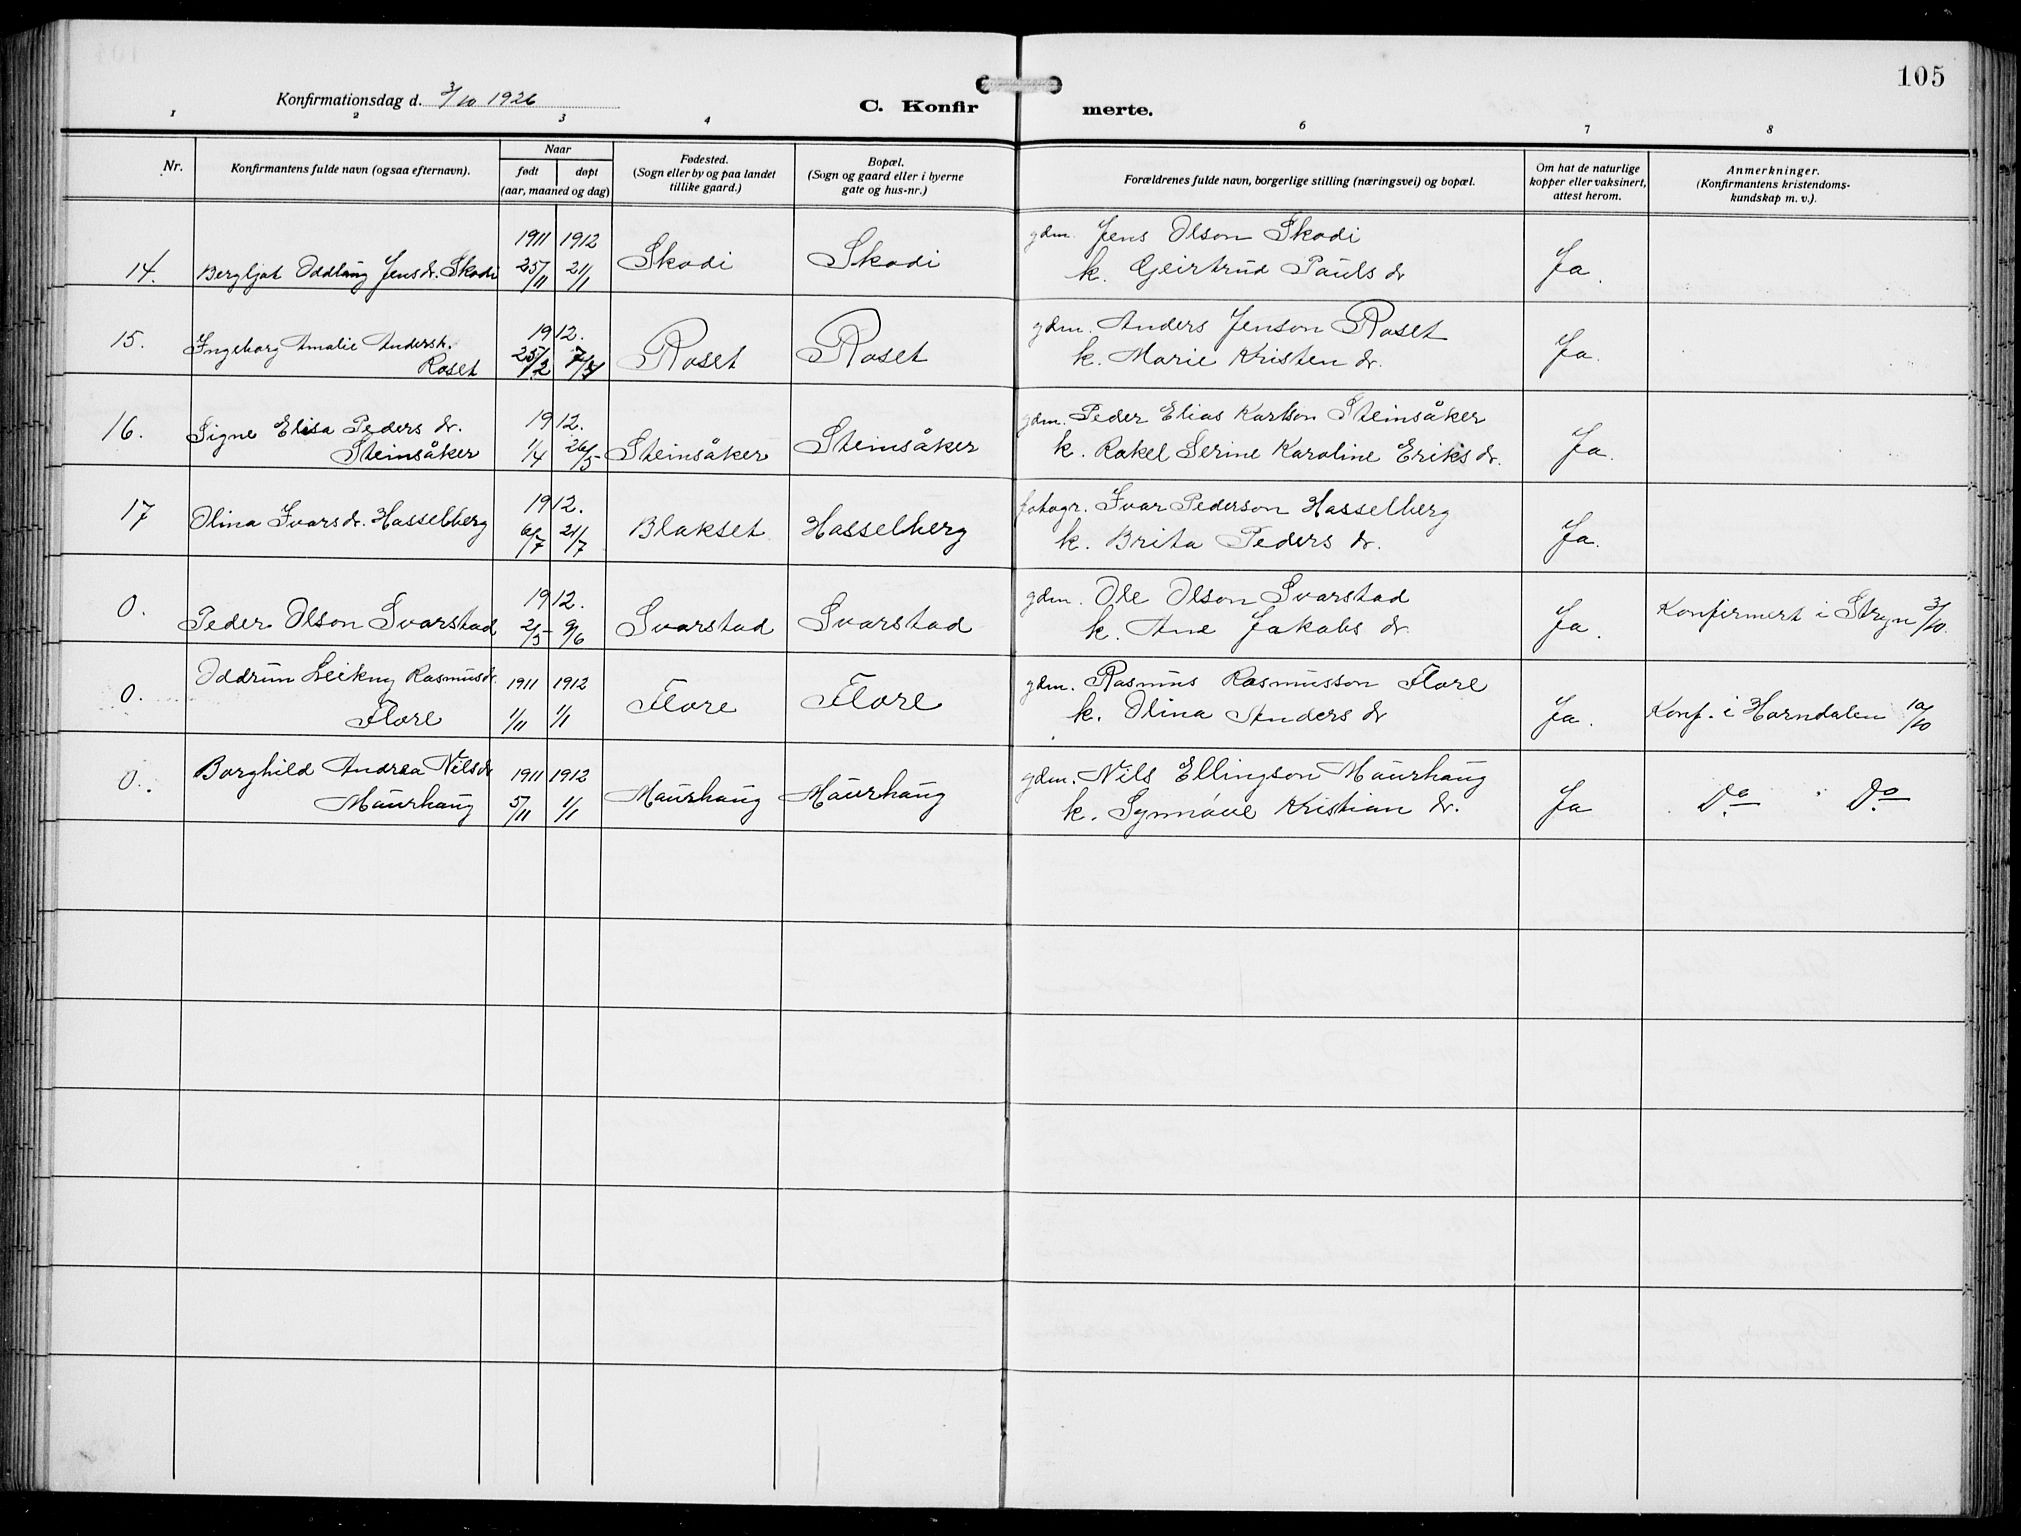 105
Konfirmationsdag d. 3/10 1926
C. Konfir merte.
1 2 3 4 6 7 8
Nr.
Konfirmantens fulde navn (ogsaa efternavn).
Naar
født døpt
(aar, maaned og dag)
Fødested.
(Sogn eller by og paa landet
tillike gaard.)
Bopæl.
(Sogn og gaard eller i byerne
gate og hus-nr.)
Forældrenes fulde navn, borgerlige stilling (næringsvei) og bopæl.
Om hat de naturlige
kopper eller vaksinert,
attest herom.
Anmerkninger.
(Konfirmantens kristendoms-
kundskap m. v.).
1911 1912 gdm. Jens Olson Skodi
14. Bergljot Oddlaug Jensdr. Skodi 25/11 21/1 Skodi Skodi k. Geirtrud Pauls dr Ja.
15. Ingeborg Amalie Andersdr. 1912. gdm. Anders Jenson Roset
Roset 25/2 7/4 Roset Roset k. Marie Kristen dr. Ja.
16. Signe Elisa Peders dr. 1912. gdm. Peder Elias Karlson Steinsåker
Steinsåker 1/4 26/5 Steinsåker Steinsåker k. Rakel Serine Karoline Eriks dr. Ja.
17 Olina Ivarsdr. Hasselberg 1912. fotogr. Ivar Pederson Hasselberg
6/7 21/7 Blakset Hasselberg k. Brita Peders dr. Ja.
0. 1912. gdm. Ole Olson Svarstad
Peder Olson Svarstad 2/5 9/6 Svarstad Svarstad k. Ane Jakobs dr. Ja. Konfirmert i Stryn 3/10.
0. Oddrun Leikny Rasmusdr. 1911 1912 gdm. Rasmus Rasmusson Flore
Flore 1/11 1/1 Flore Flore k. Olina Anders dr Ja. Konf. i Horndalen 10/10
0. Borghild Andrea Nilsdr 1911 1912 gdm. Nils Ellingson Maurhaug
Maurhaug 5/11 1/1 Maurhaug Maurhaug k. Synnøve Kristian dr. Ja Do Do